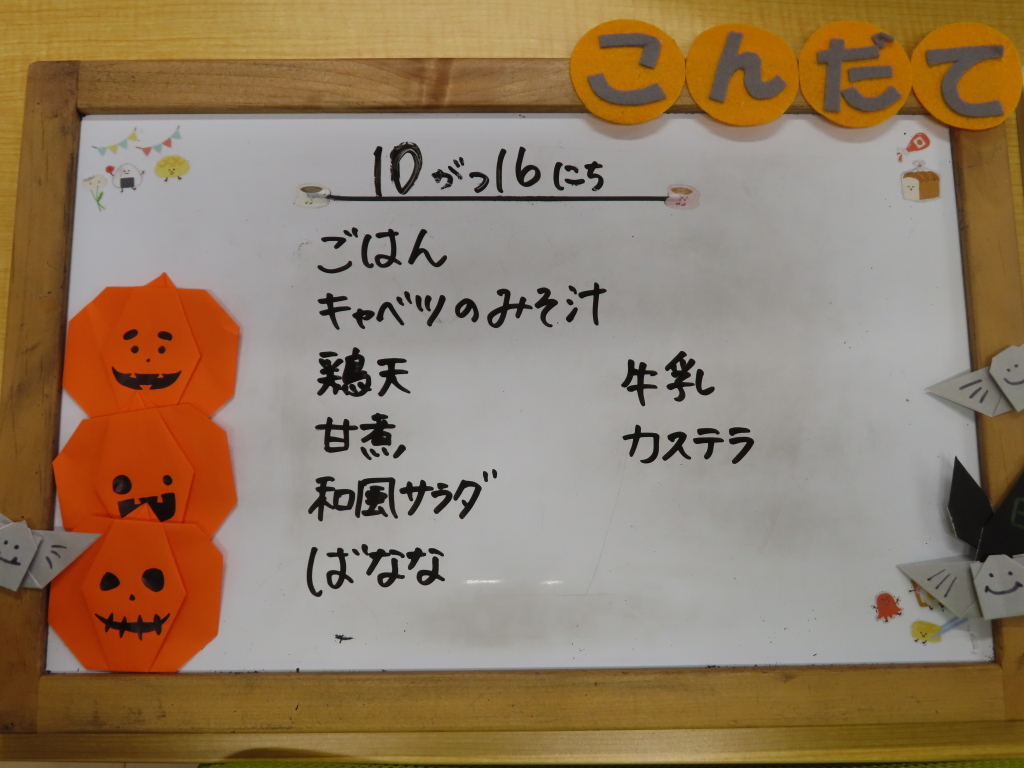 こんだて
10がつ16にち
ごはん
キャベツのみそ汁
鶏天
甘煮
和風サラダ
ばなな
牛乳
カステラ